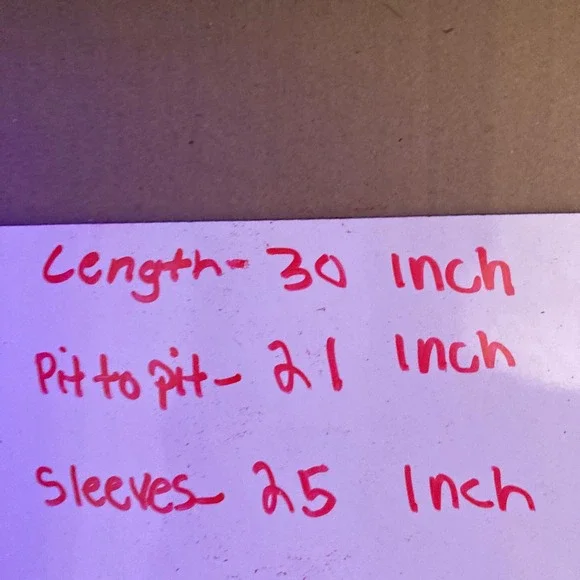 Length- 30 Inch
Pit to pit- 21 Inch
Sleeves- 25 Inch